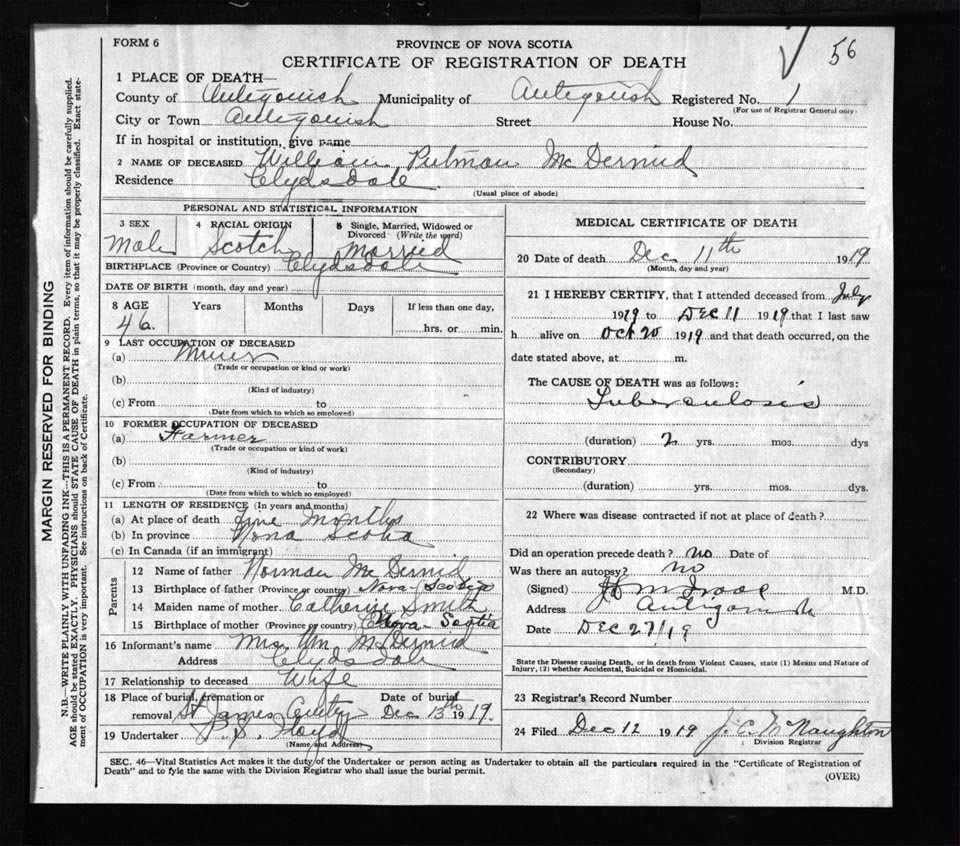 FORM 6
PROVINCE OF NOVA SCOTIA
56
CERTIFICATE OF REGISTRATION OF DEATH
1 PLACE OF DEATH—
County of Antigonish Municipality of Antigonish Registered No. 1
(For use of Registrar General only)
City or Town Antigonish Street House No.
If in hospital or institution, give name
2 NAME OF DECEASED William Putman McDernid
Residence Clydsdale
(Usual place of abode)
PERSONAL AND STATISTICAL INFORMATION
3 SEX 4 RACIAL ORIGIN 5 Single, Married, Widowed or
Divorced (Write the word)
Male Scotch Married
BIRTHPLACE (Province or Country) Clydsdale
DATE OF BIRTH (month, day and year)
8 AGE Years Months Days If less than one day,
46. hrs. or min.
9 LAST OCCUPATION OF DECEASED
(a) Miner
(Trade or occupation or kind or work)
(b)
(Kind of industry)
(c) From to
(Date from which to which so employed)
10 FORMER OCCUPATION OF DECEASED
(a) Farmer
(Trade or occupation or kind of work)
(b)
(Kind of industry)
(c) From to
(Date from which to which so employed)
11 LENGTH OF RESIDENCE (In years and months)
(a) At place of death Months
(b) In province Nova Scotia
(c) In Canada (if an immigrant)
Parents
12 Name of father Norman McDernid
13 Birthplace of father (Province or country) Nova Scotia
14 Maiden name of mother Catherine Smith
15 Birthplace of mother (Province or country) Nova-Scotia
16 Informant's name Mrs Wm McDernid
Address Clydsdale
17 Relationship to deceased Wife
18 Place of burial, cremation or Date of burial
removal St James Dec 13th 1919.
19 Undertaker P.S. Floyd
(Name and Address)
MEDICAL CERTIFICATE OF DEATH
20 Date of death Dec 11th 1919
(Month, day and year)
21 I HEREBY CERTIFY, that I attended deceased from July
1919 to DEC 11 1919 that I last saw
h alive on Oct 20 1919 and that death occurred, on the
date stated above, at m.
The CAUSE OF DEATH was as follows:
Tuberculosis
(duration) 2 yrs. mos. dys
CONTRIBUTORY
(Secondary)
(duration) yrs. mos. dys.
22 Where was disease contracted if not at place of death?
Did an operation precede death? no Date of
Was there an autopsy? no
(Signed) M.D.
Address Antigonish
Date DEC 27/19
State the Disease causing Death, or in death from Violent Causes, state (1) Means and Nature of
Injury, (2) whether Accidental, Suicidal or Homicidal.
23 Registrar's Record Number
24 Filed Dec 12 1919 J. C. McNaughton
Division Registrar
SEC. 46—Vital Statistics Act makes it the duty of the Undertaker or person acting as Undertaker to obtain all the particulars required in the "Certificate of Registration of
Death" and to fyle the same with the Division Registrar who shall issue the burial permit.
(OVER)
MARGIN RESERVED FOR BINDING
N.B.—WRITE PLAINLY WITH UNFADING INK—THIS IS A PERMANENT RECORD. Every item of information should be carefully supplied.
AGE should be stated EXACTLY. PHYSICIANS should STATE CAUSE OF DEATH in plain terms, so that it may be properly classified. Exact state-
ment of OCCUPATION is very important. See instructions on back of Certificate.